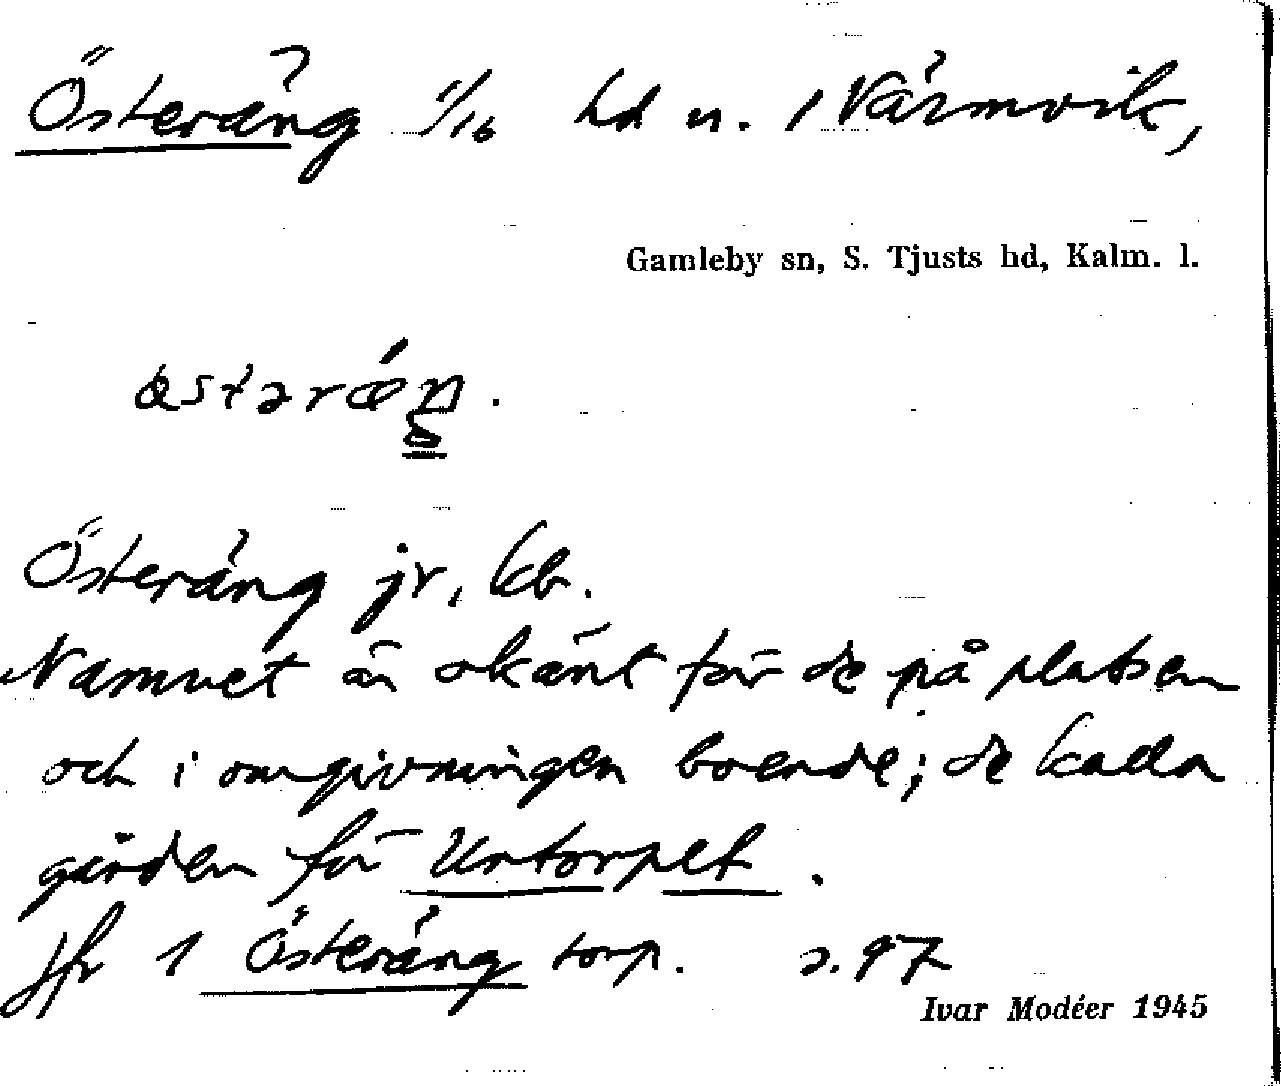 Österäng 1/16 hd u. 1 Värmvik,
Gamleby sn, S. Tjusts hd, Kalm. l.
Österäng jr, kb.
Namnet är okänt för de på platsen
och i omgivningen boende; de kalla
gården för Urtorpet.
Jfr 1 Österäng torp. s. 97
Ivar Modéer 1945